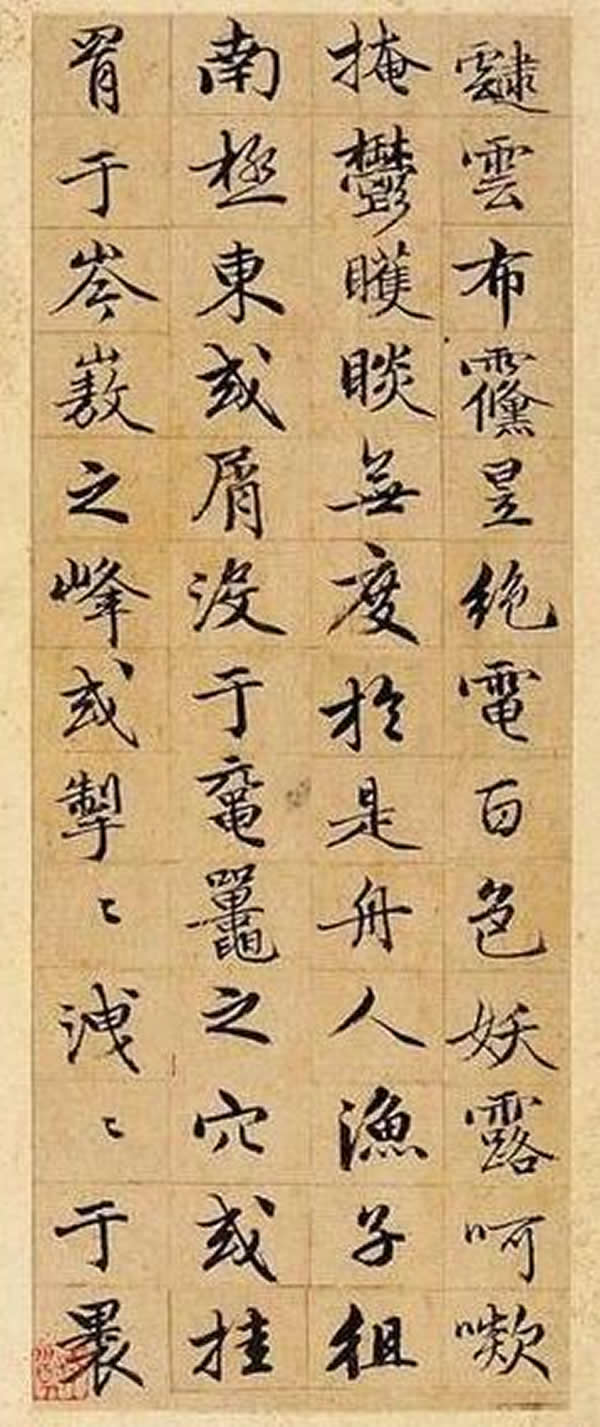 靆雲布昱絕電百色妖露呵㗵
掩鬱矆睒無度於是舟人漁子徂
南極東或屑沒于黿鼉之穴或挂
罥于岑嶅之峰或掣〻洩〻于褁